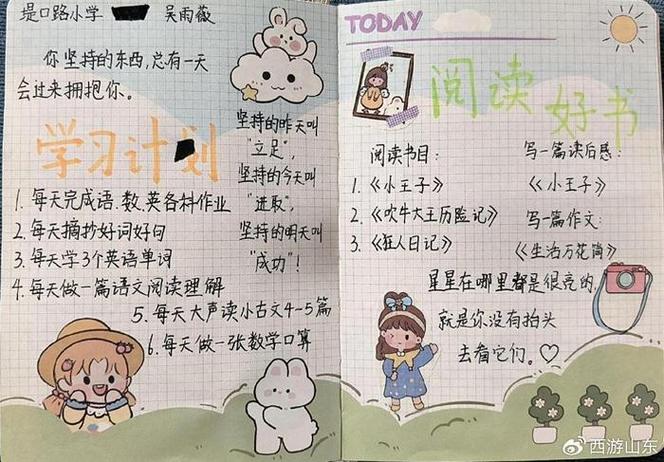 堤口路小学 吴雨薇
你坚持的东西,总有一天
会过来拥抱你。
学习计划
坚持的昨天叫
"立足",
坚持的今天叫
"进取",
坚持的明天叫
"成功"!
1. 每天完成语、数、英各科作业
2. 每天摘抄好词好句
3. 每天学3个英语单词
4. 每天做一篇语文阅读理解
5. 每天大声读小古文4-5篇
6. 每天做一张数学口算
TODAY
阅读好书
阅读书目:
1.《小王子》
2.《吹牛大王历险记》
3.《狂人日记》
写一篇读后感:
《小王子》
写一篇作文:
《生活万花筒》
星星在哪里都是很亮的,
就是你没有抬头
去看它们。♡
@西游山东